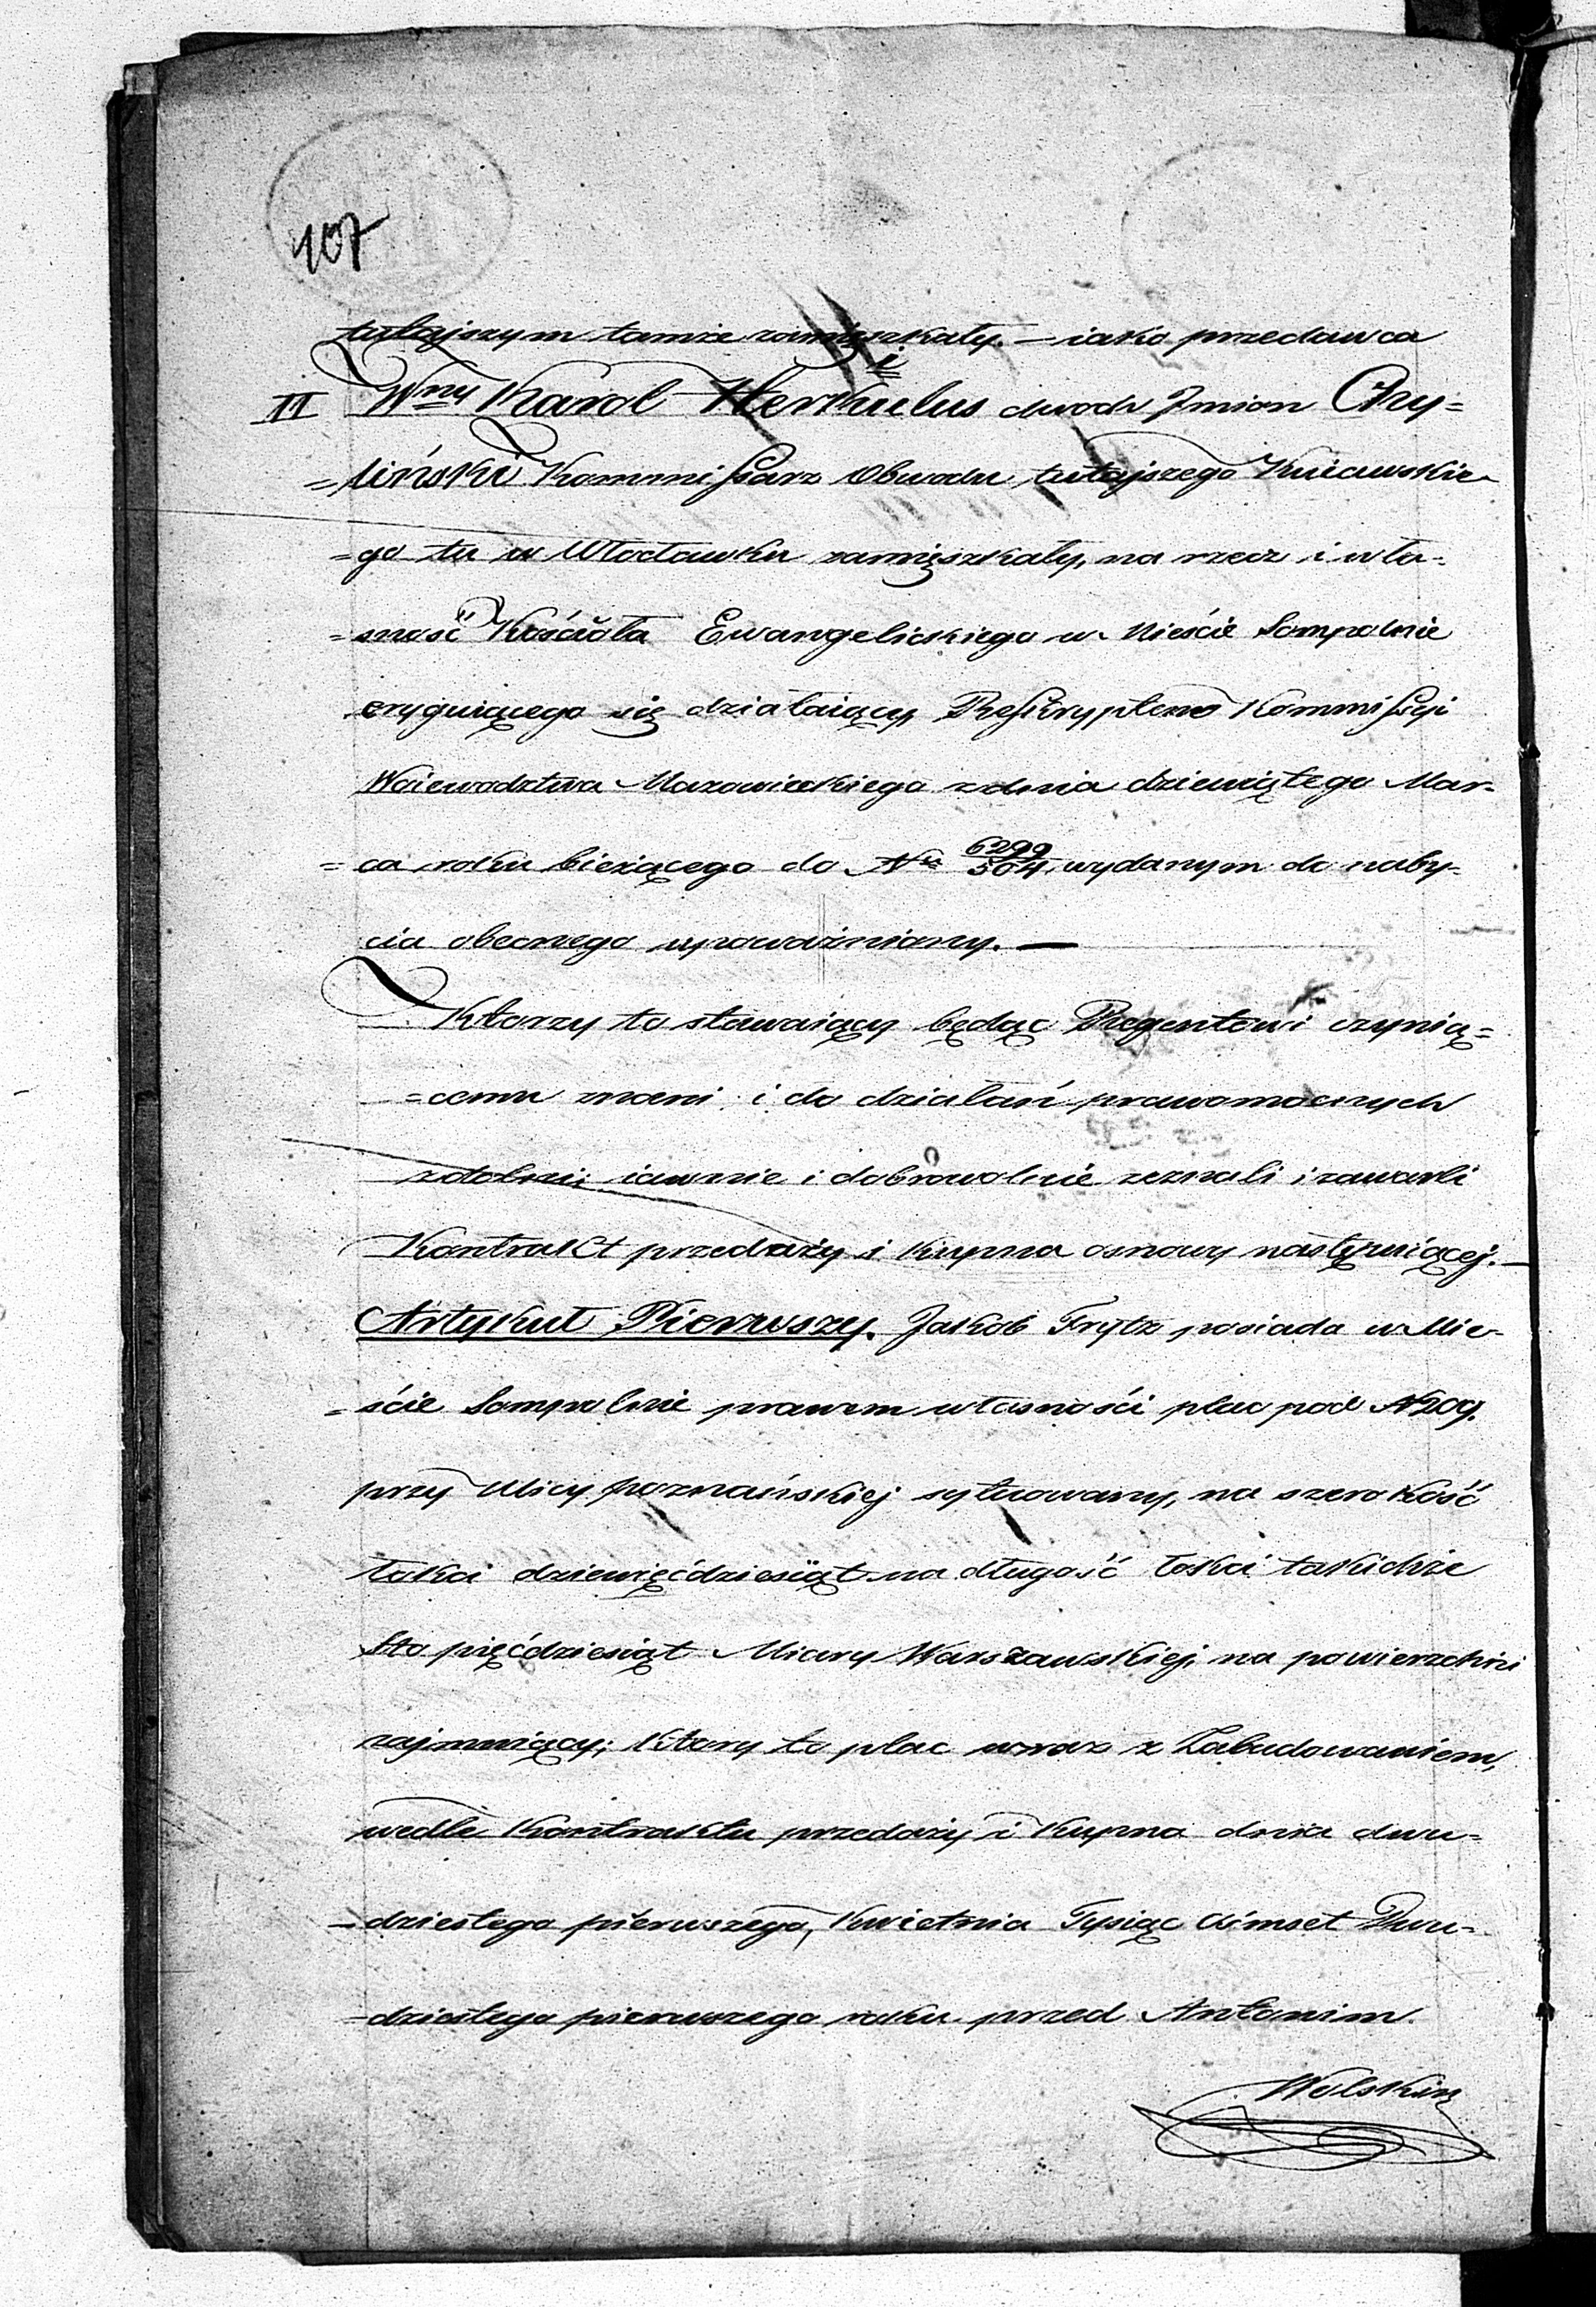 107
tutajszym tamże zamięszkały. — iako przedawca
i
II Wny Karol Herkulus dwoch Jmion Czy=
=liński Kommissarz Obwodu tutajszego Kuiawskie
=go tu w Włocławku zamięszkały, na rzecz i wła=
=sność Kościoła Ewangelickiego w Mieście Sompolnie
eryguiącego się działaiący, Reskryptem Kommissyi
Woiewodztwa Mazowieckiego z dnia dziewiątego Mar=
=ca roku bieżącego do Nru 6299/504 wydanym do naby=
cia obecnego upoważniony. —
Ktorzy to stawaiący będąc Regentowi czynią=
=cemu znani i do działań prawomocnych
zdolni; iawnie i dobrowolnie zeznali i zawarli
Kontrakt przedaży i kupna osnowy następuiącej. —
Artykuł Pierwszy. Jakob Frytz posiada w Mie=
=ście Sompolnie prawem własności plac pod N 209.
przy Ulicy poznańskiej sytuowany, na szerokość
łokci dziewięćdziesiąt na długość łokci takichże
Sto pięćdziesiąt Miary Warszawskiej, na powierzchni
zajmuiący; ktory to plac wraz z Zabudowaniem,
wedle Kontraktu przedaży i Kupna dnia dwu=
=dziestego pierwszego, Kwietnia Tysiąc Osmset Dwu=
=dziestego pierwszego roku przed Antonim
Wolskim